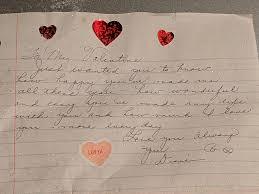 To My Valentine
just wanted you to know
how happy you've made me
all these years how wonderful
and easy you've made my life
with you and how much I love
you more everyday
Love you always